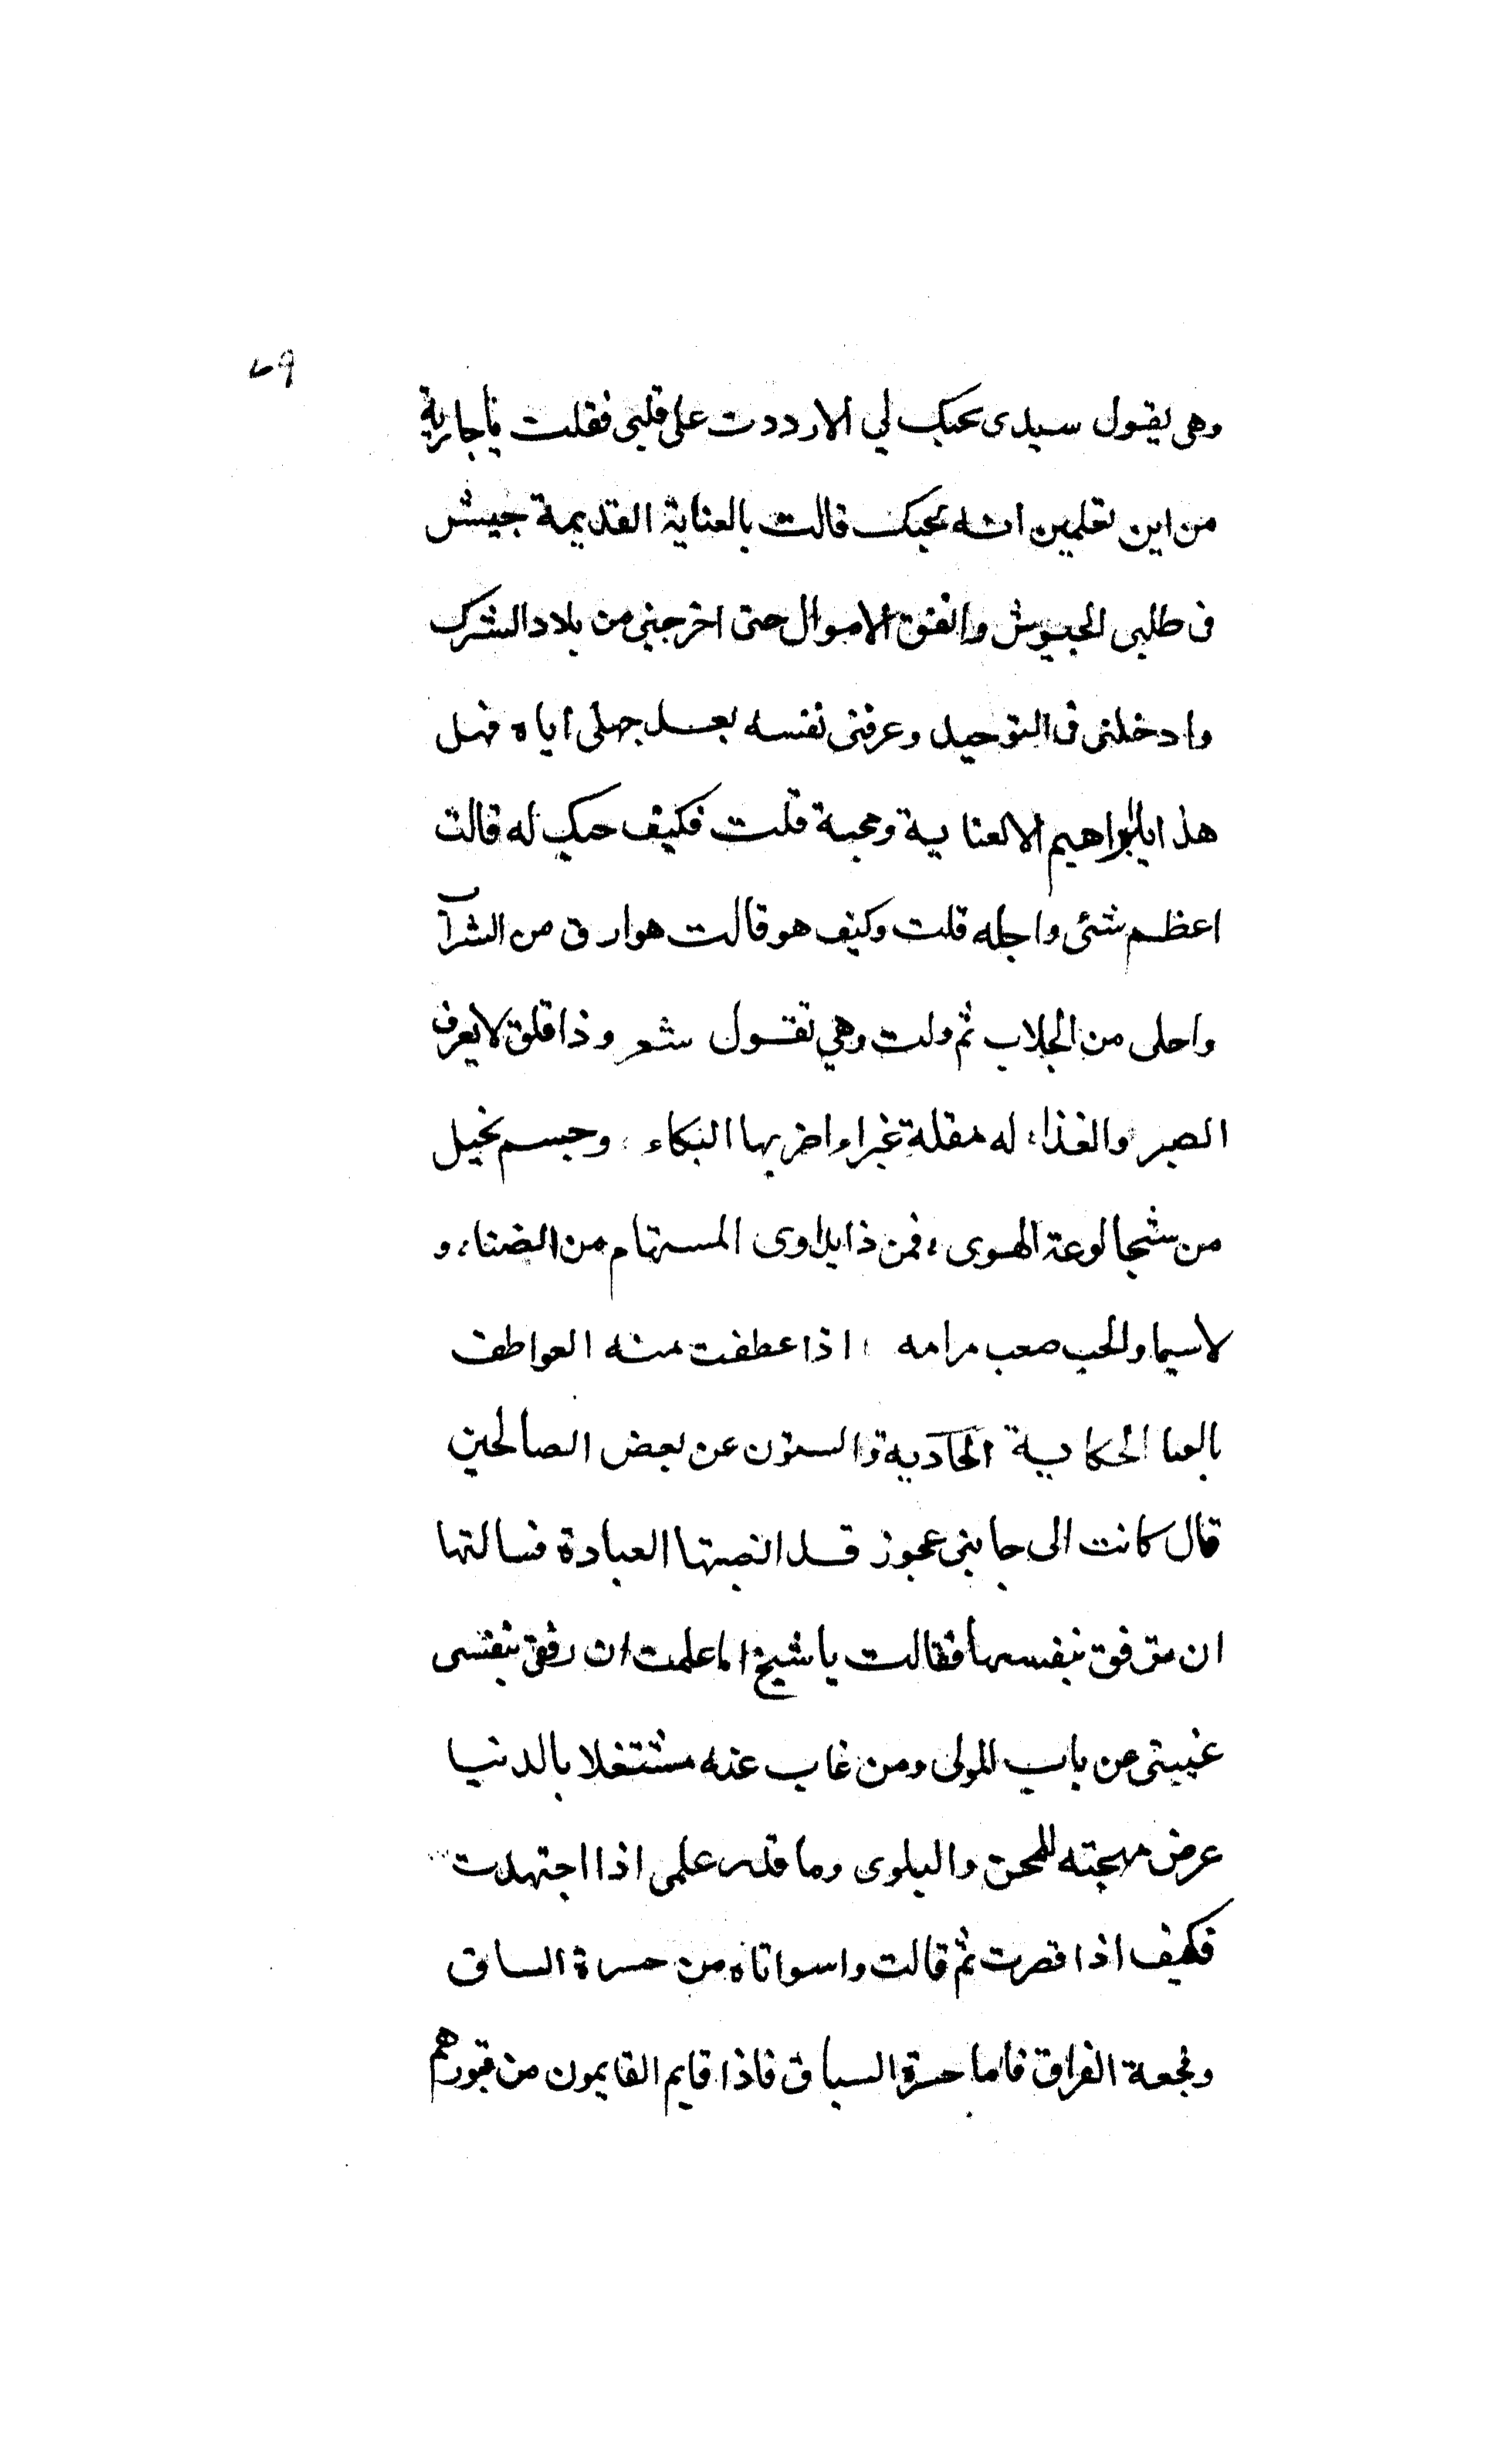 ٤٩
وهى يقول سيدى بحبك لي الا رددت على قلبى فقلت يا جارية
من اين تعلمين انه يحبك قالت بالعناية القديمة جيش
فى طلبى الجيوش وانفق الاموال حتى اخرجنى من بلاد الشرك
وادخلنى فى التوحيد وعرفنى نفسه بعد جهلى اياه فهل
هذا يا ابراهيم الا لعناية ومحبة قلت فكيف حبك له قالت
اعظم شئ واجله قلت وكيف هو قالت هو ارق من الشراب
واحلى من الجلاب ثم ولت وهي تقول شعر وذا قلق لا يعرف
الصبر والغذا، له مقلة غبراء اضر بها البكاء، وجسم نحيل
من شجا لوعة الهوى، فمن ذا يداوى المستهام من الضنا، و
لاسيما والحب صعب مرامه، اذا عطفت منه العواطف
الحكاية الحادية والستون عن بعض الصالحين
قال كانت الى جانبى عجوز قد انصبتها العبادة فسالتها
ان ترفق بنفسها فقالت يا شيخ اما علمت ان رفقى بنفسى
غيبتى عن باب المولى ومن غاب عنه مشتغلا بالدنيا
عرض مهجته للمحن والبلوى وما قدر علمى اذا اجتهدت
فكيف اذا قصرت ثم قالت واسواتاه من حسرة السباق
وفجعة الفراق فاما حسرة السباق فاذا قايم القايمون من قبورهم